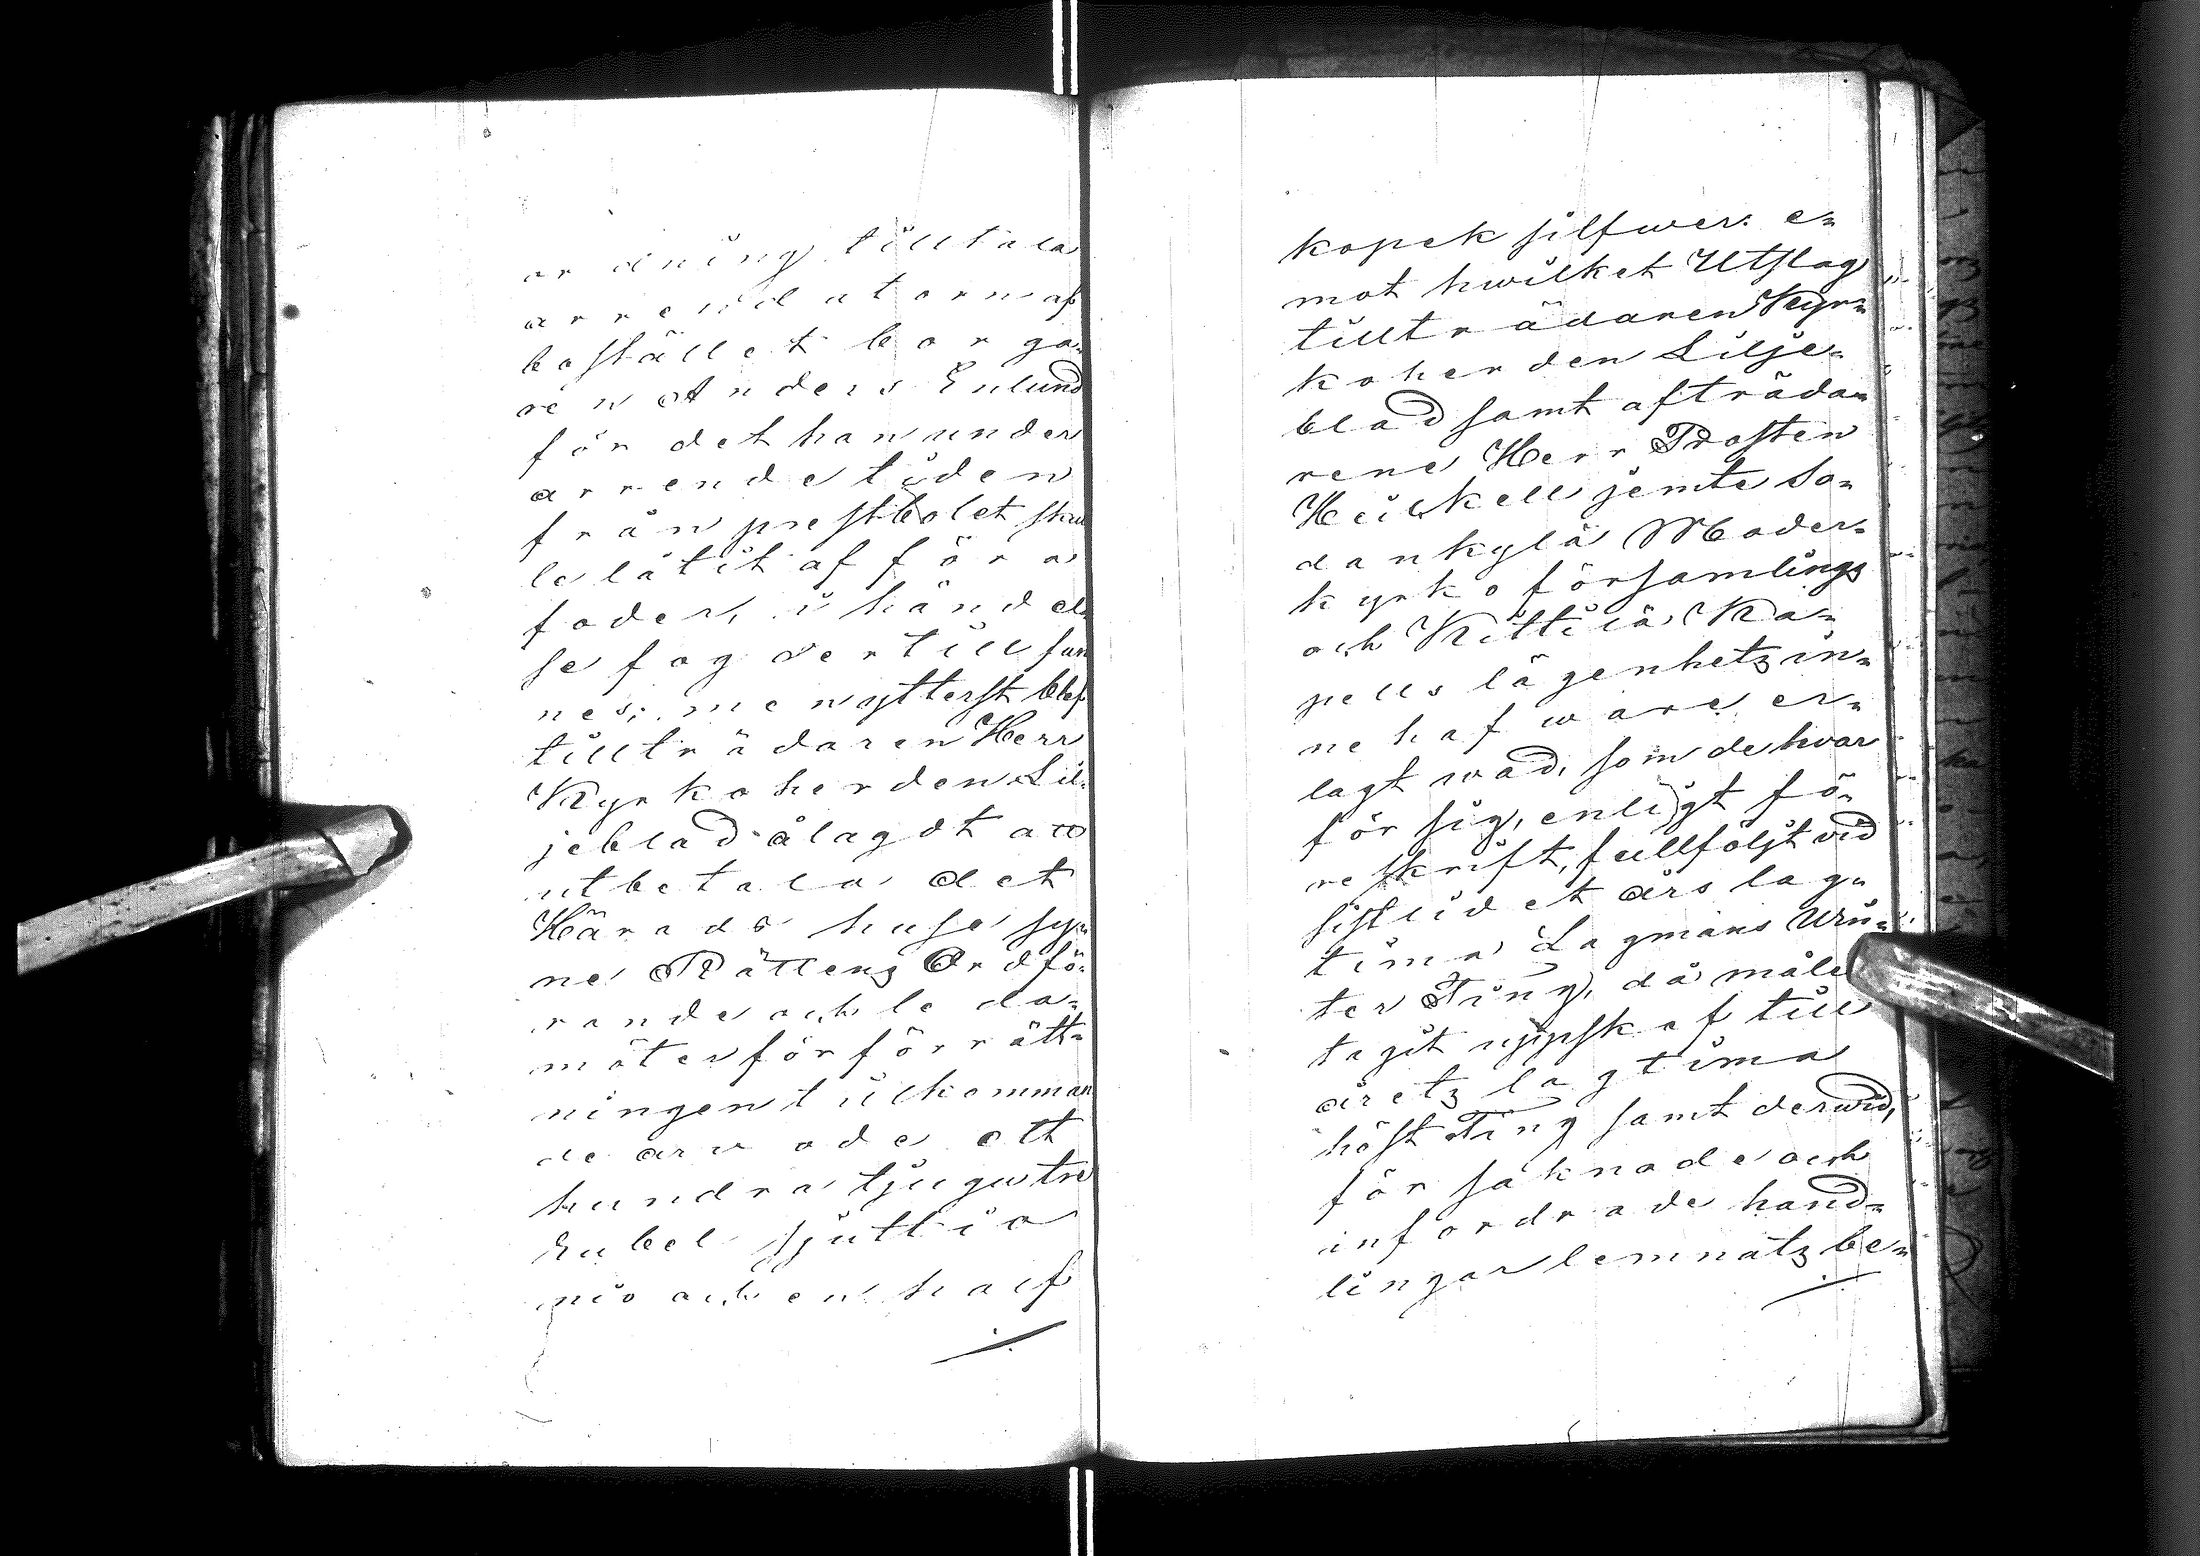 ordning tilltala
arrendatorn af
bostället borga-
ren Anders Enlund
för det han under
arrendetiden
från prestbolet skul
le låtit afföra
foder, i händel
se fog dertill fun
nes; men ytterst blef
tillträdaren Herr
Kyrkoherden Lil-
jeblad ålagdt att
utbetala det
Härads husesy-
ne Rättens Ordfö-
rande och leda-
möter för förrätt-
ningen tillkomman
de arvode ett
hundra tjugutre
rubel sjuttio
nio och en half
kopek silfwer: e-
mot hwilket Utslag
tillträdaren Kyr-
koherden Lilje-
blad samt afträda-
rene Herr Prosten
Heickell jemte So-
dankylä Moder-
kyrko församlings
och Kittilä Ka-
pells lägenhetz in-
nehafware er-
lagt wad, som de hvar
för sig, enligt fö-
reskrift, fullföljt vid
sistlidet års lag-
tima Lagmans Win-
ter Ting, då måle
tagit uppskof till
åretz lagtima
höst Ting samt derwid,
för saknade och
infordrade hand-
lingar lemnatz be-